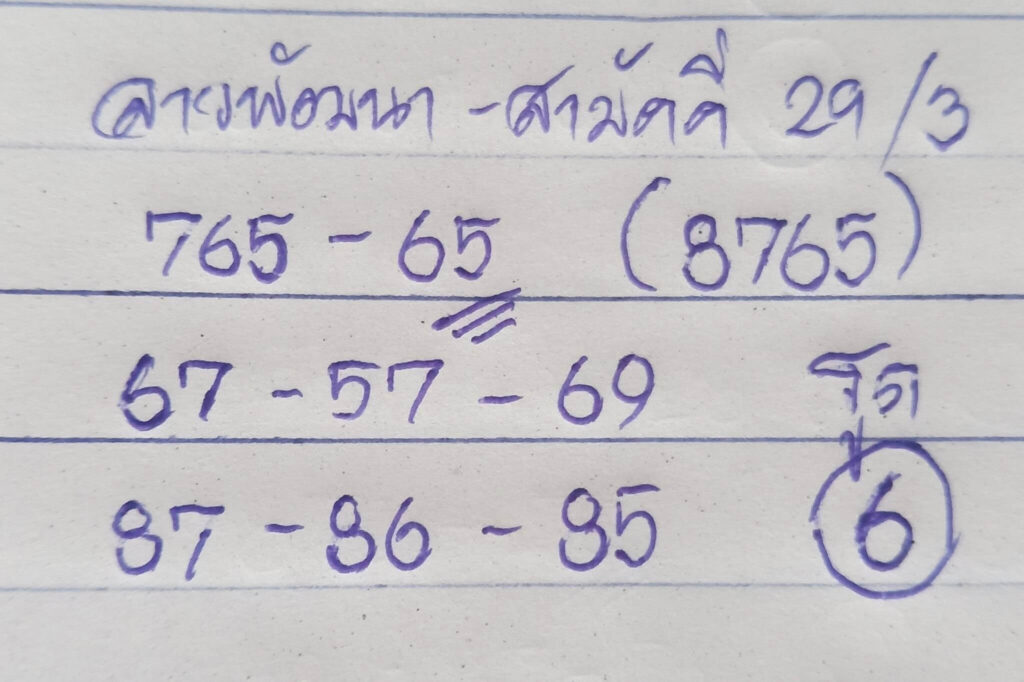 ลาวพัฒนา - สามัคคี 29/3
765 - 65 (8765)
67 - 57 - 69 รูด
87 - 86 - 85 6